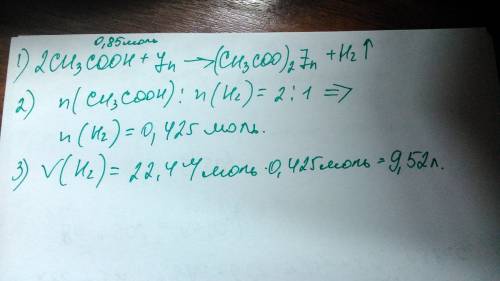 0,85моль
1) 2CH₃COOH + Zn → (CH₃COO)₂Zn + H₂↑
2) n(CH₃COOH) : n(H₂) = 2 : 1 ⇒
n(H₂) = 0,425 моль.
3) V(H₂) = 22,4 л/моль · 0,425 моль = 9,52 л.